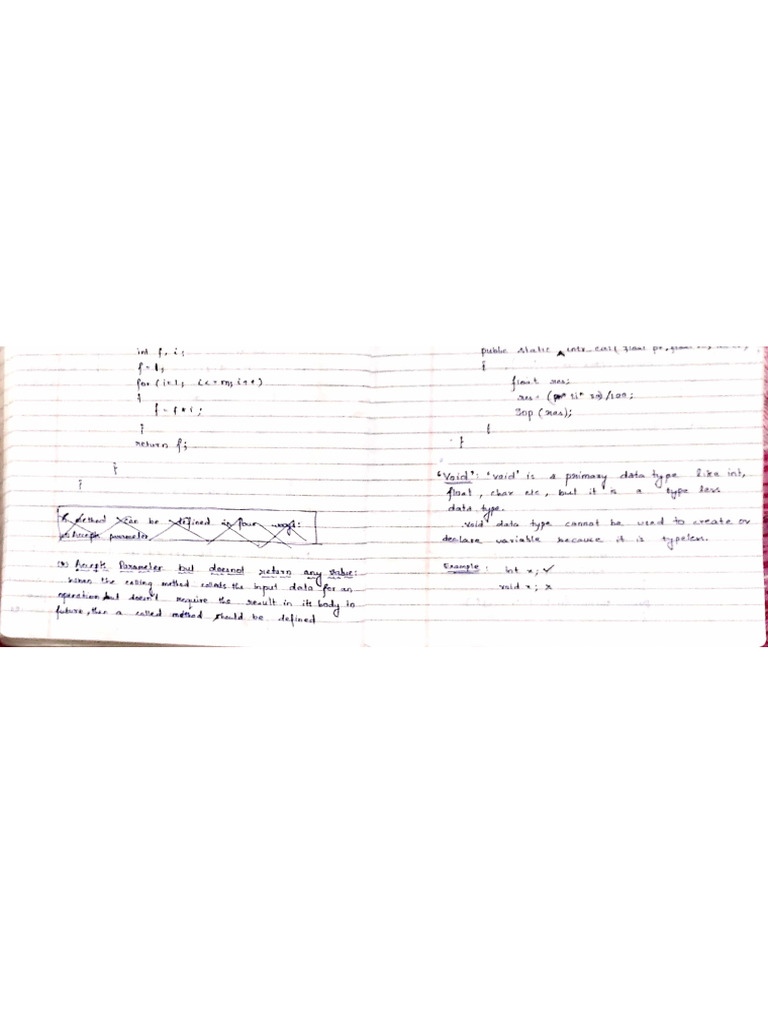 int f, i;
f = 1;
for (i=1; i<=n; i++)
{
f = f * i;
}
return f;
}
}
A method can be defined in four ways:
Accept parameter
Accept Parameter but doesnot return any value:
when the calling method collects the input data for an
operation but doesn't require the result in its body in
future, then a called method should be defined
public static int_cal( float
{
float res;
res = /100;
Sop (res);
}
}
"Void": 'void' is a primary data type like int,
float, char etc, but it is a type less
data type.
void data type cannot be used to create or
declare variable because it is typeless.
Example: int x; ✓
void x; x